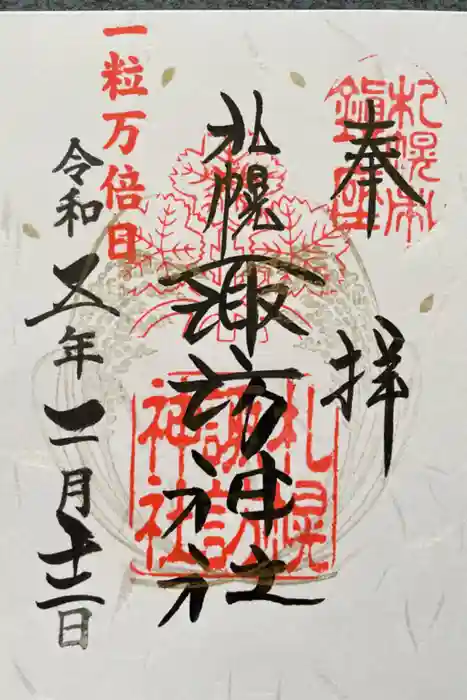 奉拝
札幌市
鎮座
札幌諏訪神社
札幌
諏訪
神社
一粒万倍日
令和五年二月十二日